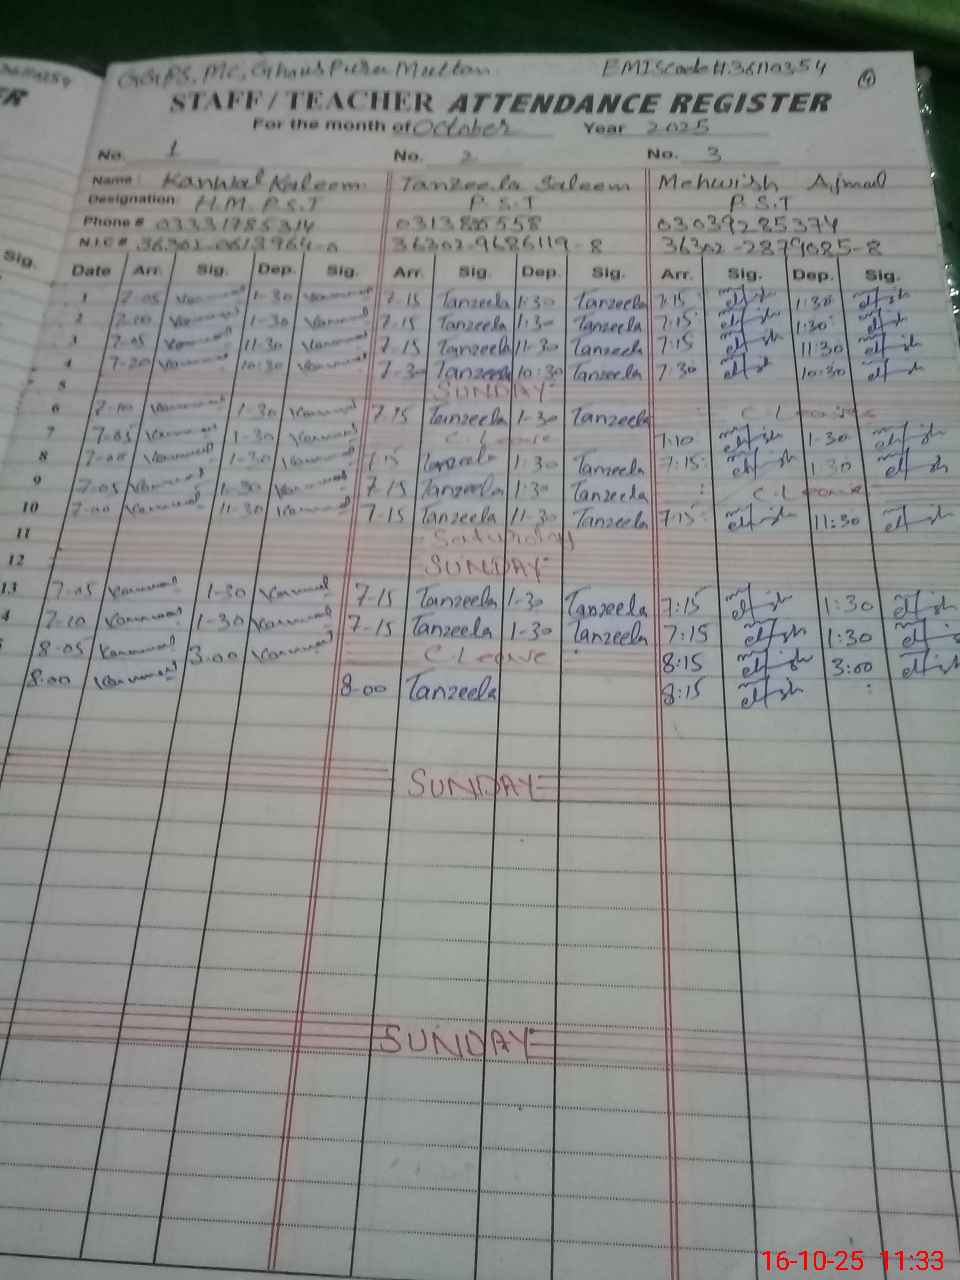 GGPS, MC, Ghaus Pura Multan EMIS code # 36110354
STAFF / TEACHER ATTENDANCE REGISTER
For the month of October Year 2025
No. 1 No. 2 No. 3
Name: Kanwal Kaleem Tanzeela Saleem Mehwish Ajmal
Designation: H.M. P.S.T P.S.T P.S.T
Phone # 03331785314 03039285374
N.I.C # 36302-9686119-8 36302-2879085-8
Sig. Date Arr. Sig. Dep. Sig. Arr. Sig. Dep. Sig. Arr. Sig. Dep. Sig.
1 7-05 1-30 7-15 Tanzeela 1:30 Tanzeela 7:15 1:30
2 7-00 1-30 7-15 Tanzeela 1:30 Tanzeela 7:15 1:30
3 7-05 11-30 7-15 Tanzeela 11-30 Tanzeela 7:15 11:30
4 7-20 10:30 7-30 Tanzeela 10:30 Tanzeela 7:30 10:30
5 SUNDAY
6 7-10 1-30 7-15 Tanzeela 1-30 Tanzeela C.Leave
7 7-05 1-30 C.Leave 7:10 1-30
8 7-00 1-30 7-15 Tanzeela 1:30 Tanzeela 7:15 1:30
9 7-05 1-30 7-15 Tanzeela 1:30 Tanzeela C.Leave
10 7-00 11-30 7-15 Tanzeela 11-30 Tanzeela 7:15 11:30
11 Saturday
12 SUNDAY
13 7-05 1-30 7-15 Tanzeela 1-30 Tanzeela 7:15 1:30
4 7-10 1-30 7-15 Tanzeela 1-30 Tanzeela 7:15 1:30
8-05 3-00 C.Leave 8:15 3:00
8:00 8-00 Tanzeela 8:15
SUNDAY
SUNDAY
16-10-25 11:33